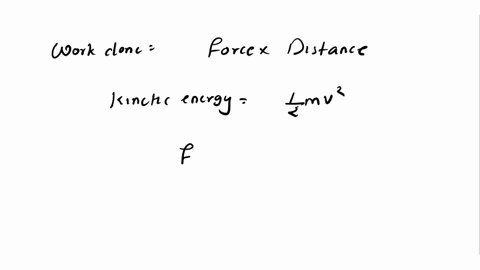 Work done = Force x Distance
Kinetic energy = 1/2 mv²
F